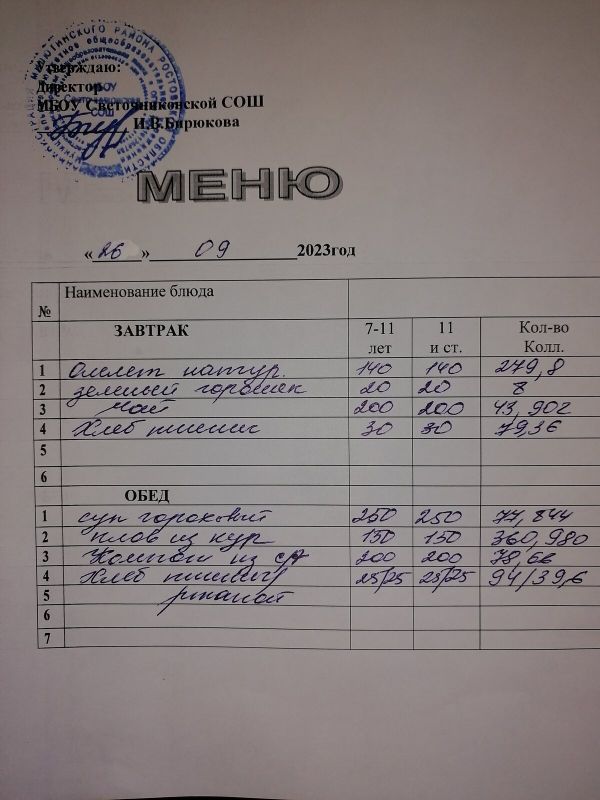 Утверждаю:
Директор
МБОУ Светочниковской СОШ
И.В.Бирюкова
МЕНЮ
« 26 » 09 2023год
№ Наименование блюда
ЗАВТРАК 7-11 лет 11 и ст. Кол-во Колл.
1 Омлет натур. 140 140 279,8
2 зеленый горошек 20 20 8
3 чай 200 200 43,902
4 Хлеб пшенич 30 30 79,36
5
6
ОБЕД
1 суп гороховый 250 250 77,844
2 плов из кур 150 150 360,980
3 Компот из с/ф 200 200 78,66
4 Хлеб пшенич/ 25/25 25/25 94/39,6
5 ржаной
6
7